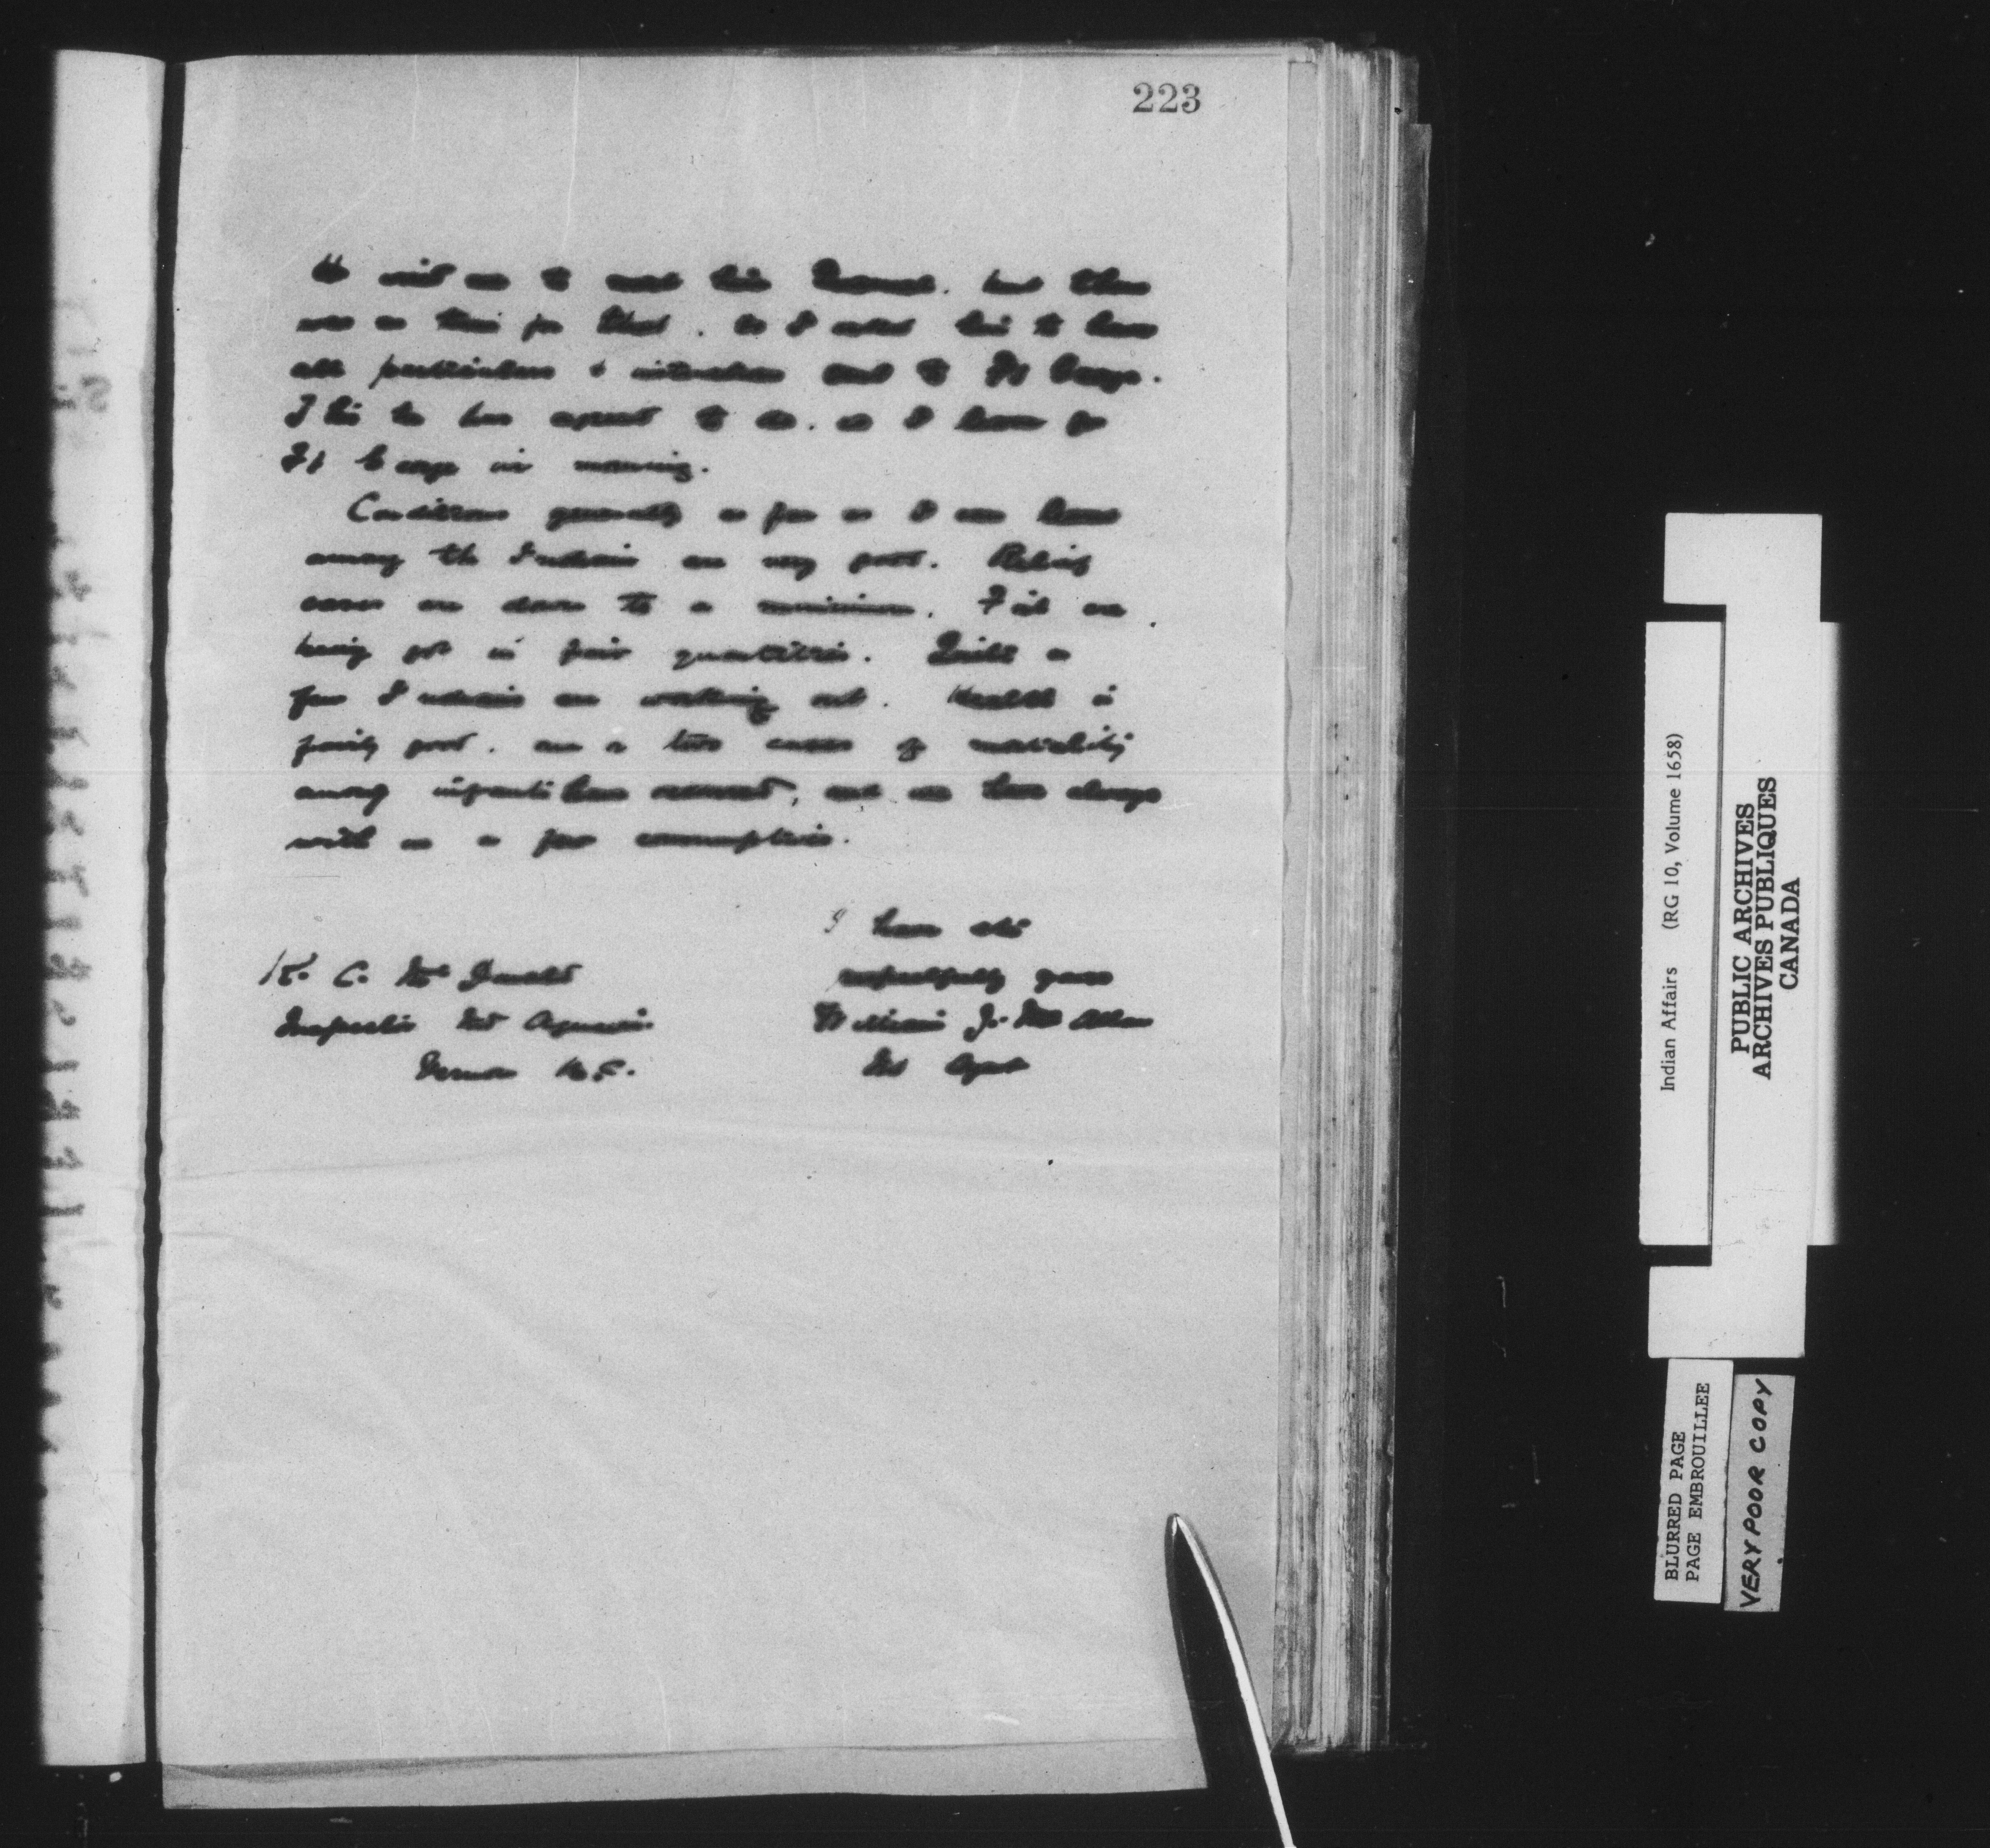 223
to meet him but there
was no time for that. So I asked him to have
all particulars & sent to Ft George.
This he has agreed to do. as I leave for
Ft George in morning.
Conditions generally as far as I can learn
among the Indians are very good. Relief
cases are down to a minimum. Fish are
being got in fair quantities. Quite a
few Indians are working out. Health is
fairly good. one or two cases of mortality
among infants have occurred, and we have always
with us a few consumptives.
I have etc
respectfully yours
K. C. McDonald
Inspector Ind Agencies
Vernon B.C.
William J. McAllan
Ind Agent
Indian Affairs (RG 10, Volume 1658)
PUBLIC ARCHIVES
ARCHIVES PUBLIQUES
CANADA
BLURRED PAGE
PAGE EMBROUILLEE
VERY POOR COPY